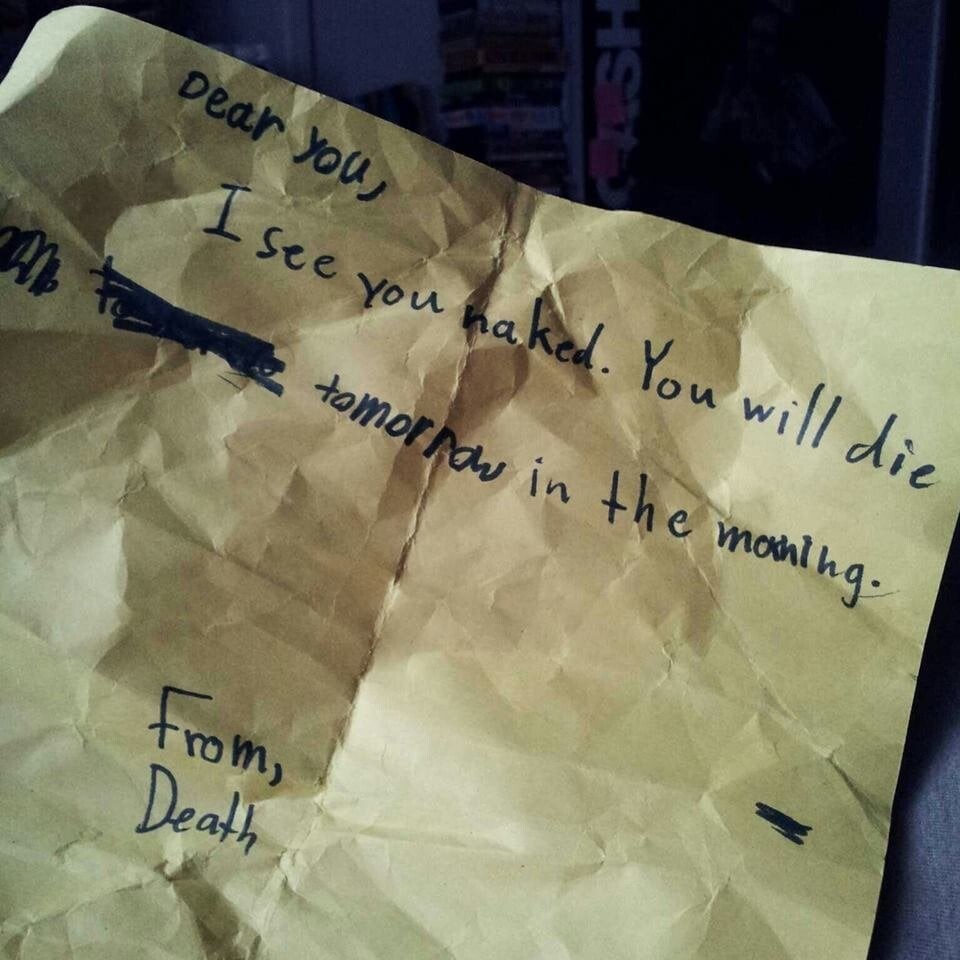 CASH
Dear you,
I see you naked. You will die
tomorrow in the morning.
From,
Death